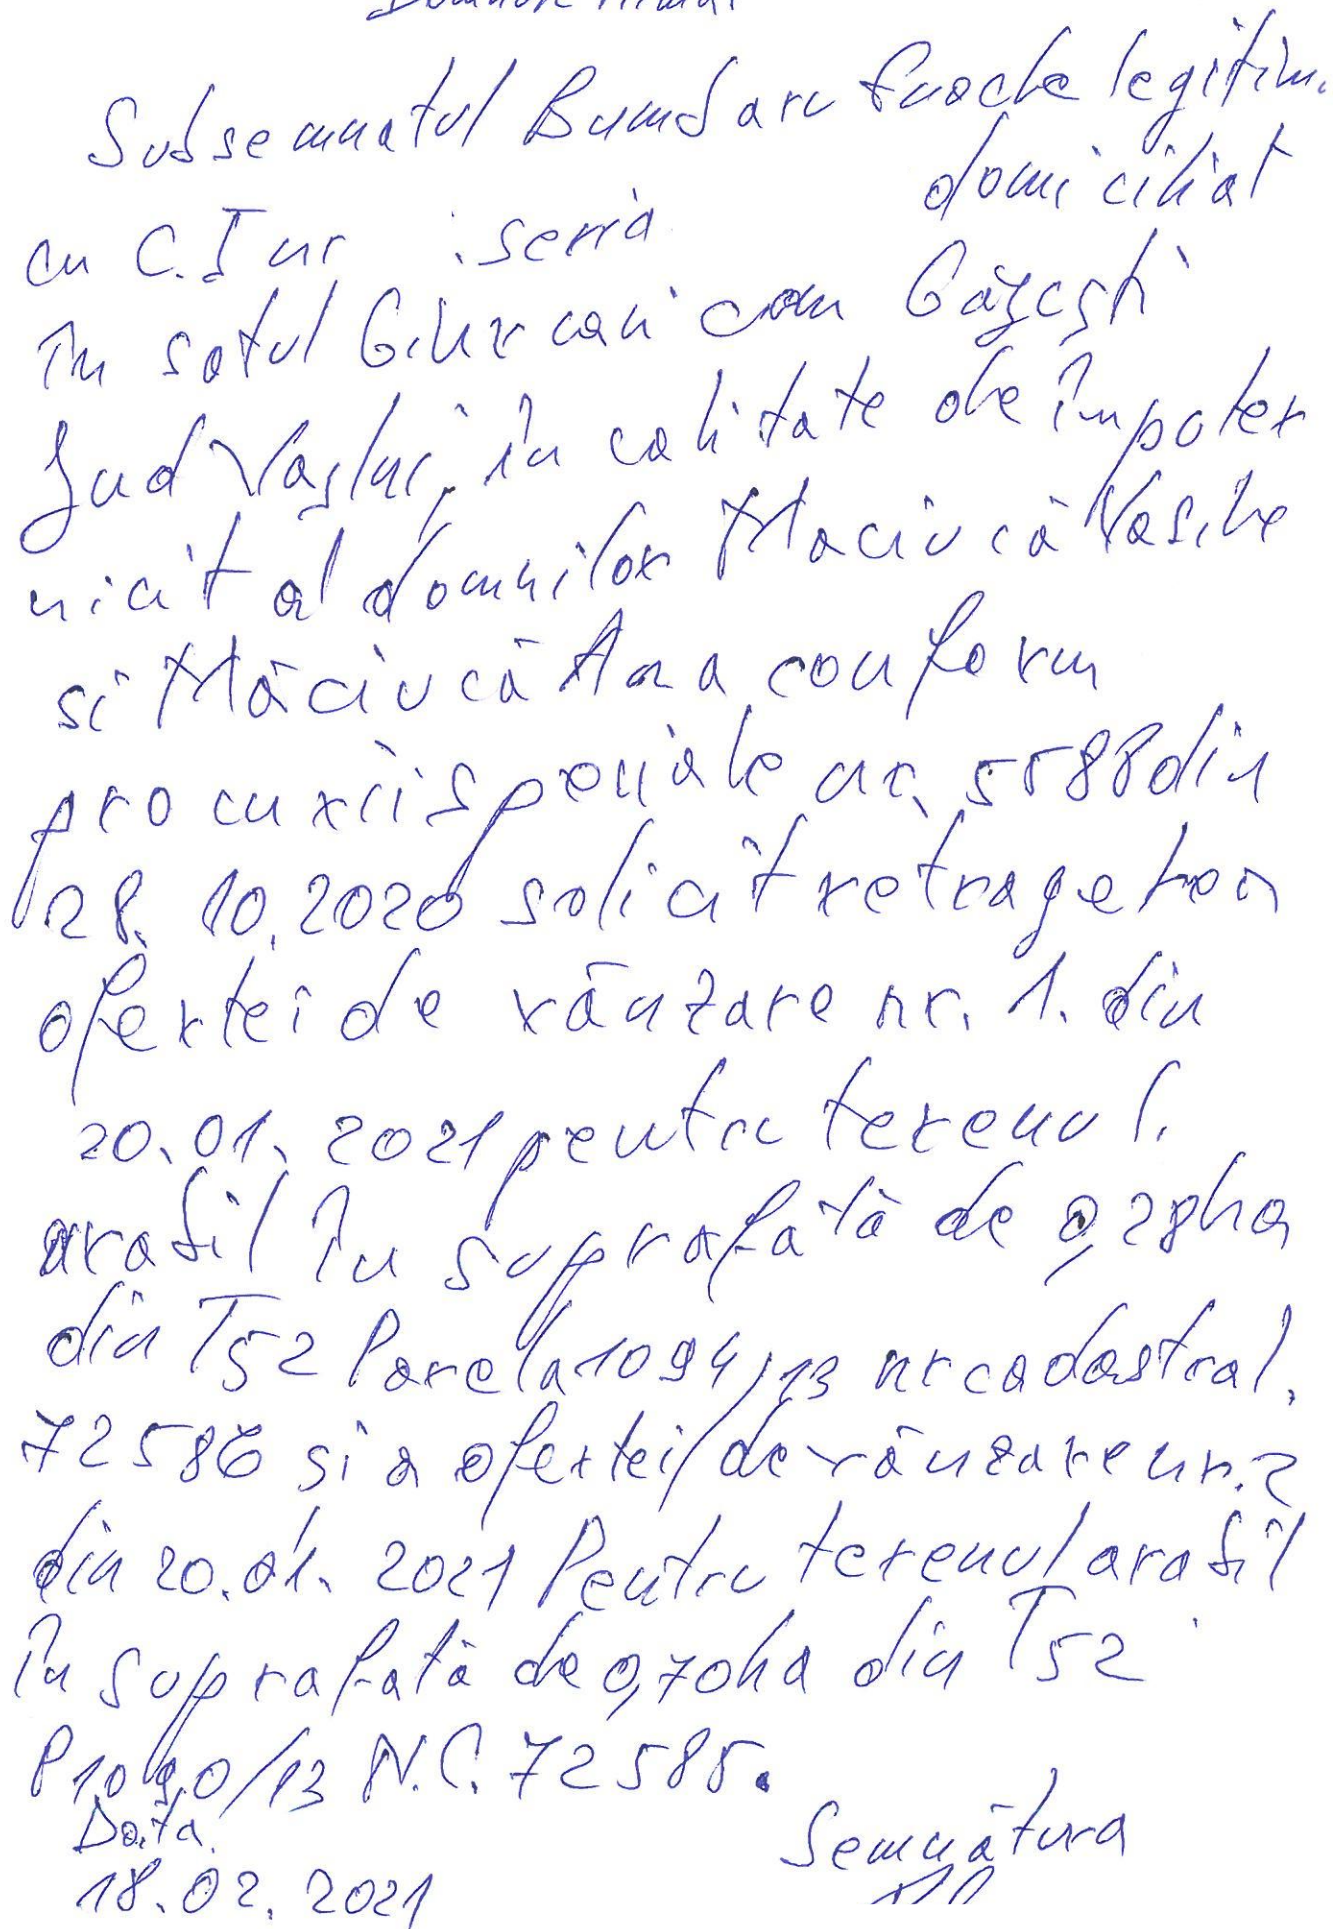 Subsemnatul Bumbaru Enache legitim.
domiciliat
cu C.I nr seria
în satul Ghircani com Găgești
Jud Vaslui, în calitate de împuter
nicit al domnilor Maciucă Vasile
si Măciucă Ana conform
procurii speciale nr. 5588 din
28.10.2020 solicit retragerea
ofertei de vânzare nr. 1. din
20.01.2021 pentru terenul.
arabil în suprafată de 0,28ha
din T52 Parcela 1094/13 nr cadastral.
72586 si a ofertei de vânzare nr. 2
din 20.01.2021 Pentru terenul arabil
în suprafată de 0,70ha din T52
P1090/13 N.C. 72585.
Data
Semnătura
18.02.2021